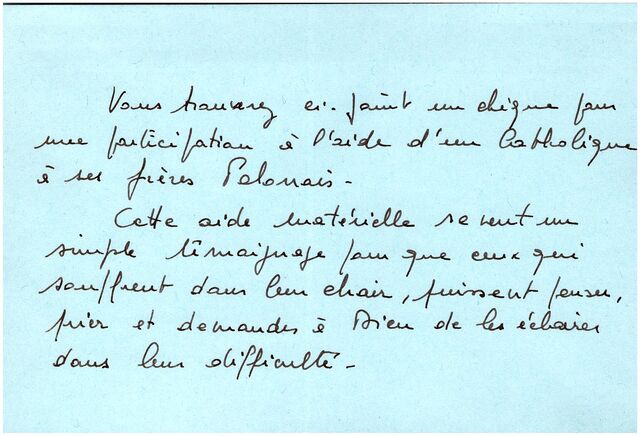 Vous trouverez ci-joint un chèque pour
une participation à l'aide d'un Catholique
à ses frères Polonais -
Cette aide matérielle se veut un
simple témoignage pour que ceux qui
souffrent dans leur chair, puissent penser,
prier et demander à Dieu de les éclairer
dans leur difficulté -